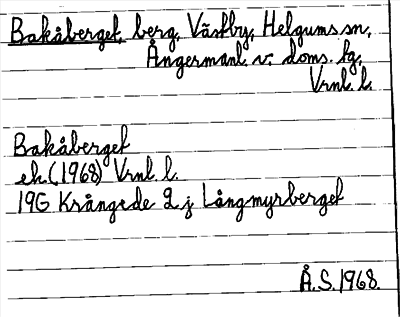 Bakåberget, berg, Västby, Helgums sn,
Ångermanl. v. doms. hg,
Vrnl. l.
Bakåberget
ek. (1968) Vrnl. l.
19G Krångede 2 j Långmyrberget
Å.S. 1968.